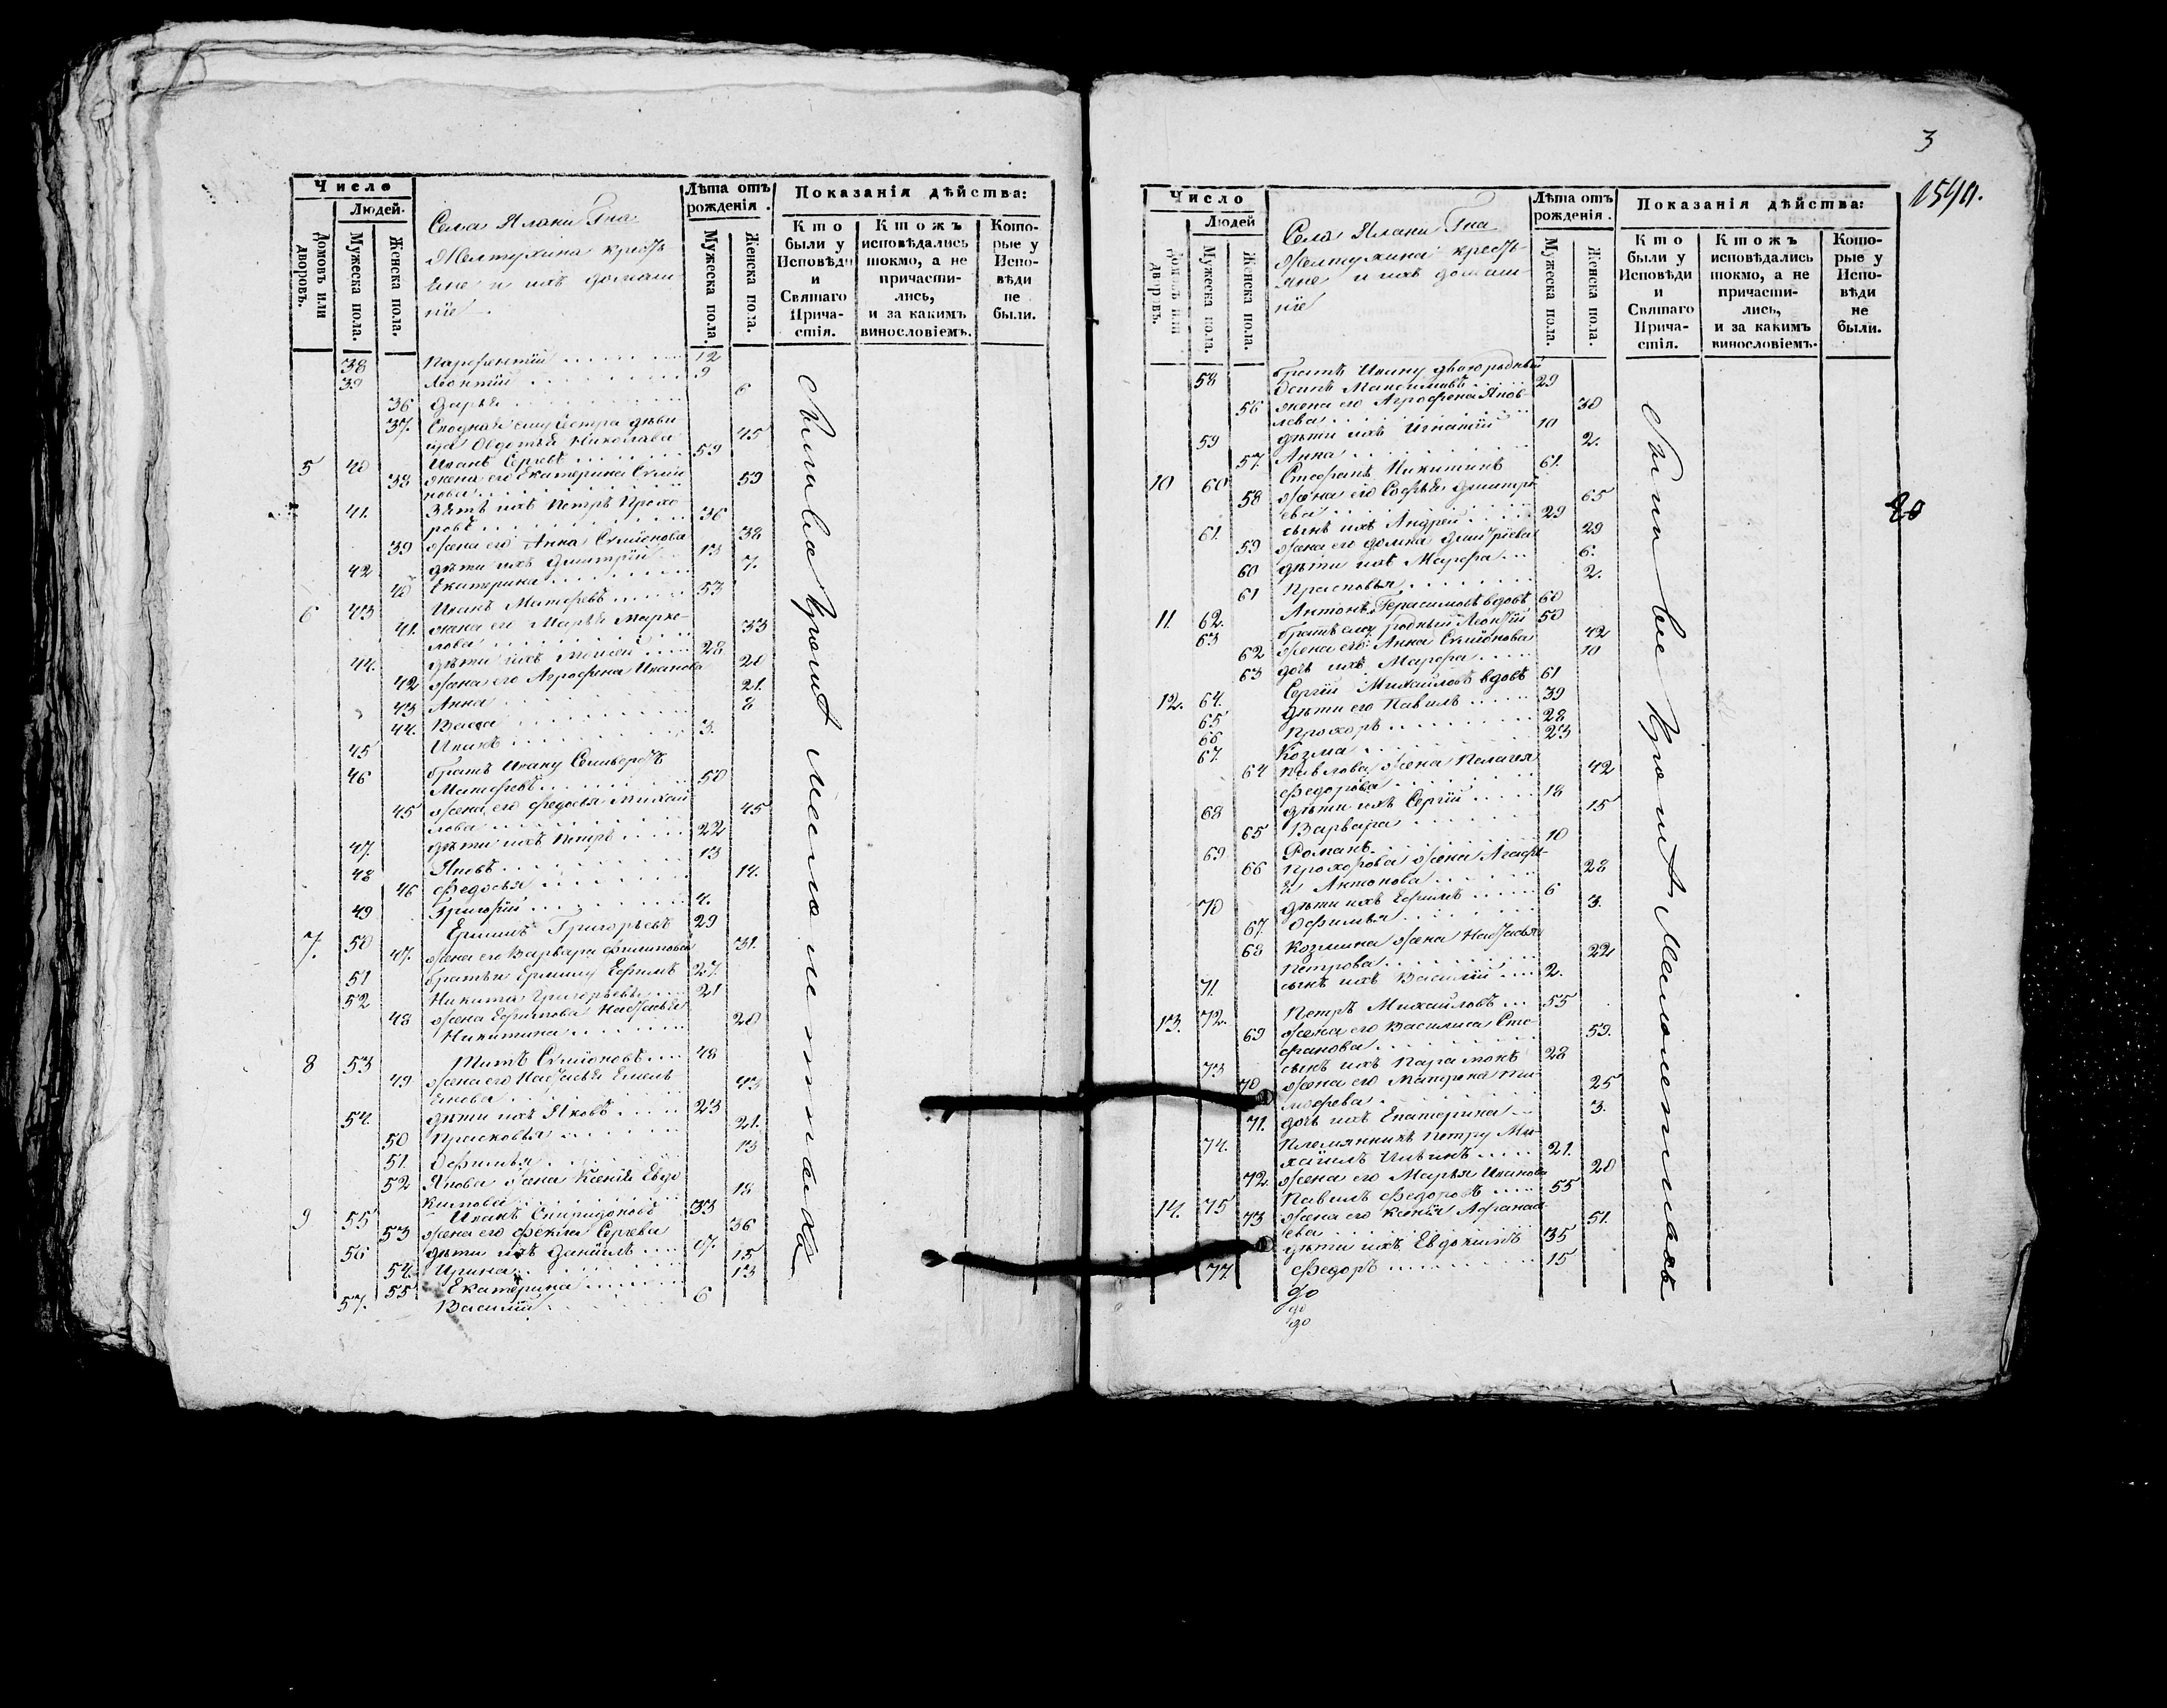 Число
Людей.
Домовъ или дворовъ.
Мужеска пола.
Женска пола.
Села Илани Гна
Желтухина кресть
яне и ихъ домаш
ніе
Лѣта отъ рожденія.
Мужеска пола.
Женска пола.
Показанія дѣйства:
Кто были у Исповѣди и Святаго Причастія.
Ктожъ исповѣдались токмо, а не причастились, и за какимъ винословіемъ.
Которые у Исповѣди не были.
38 Парфентій 12
39 Леонтій 9
36 Дарья 6
37. ему сестра дѣви
ца Овдотья Николаева 45
5 40 Иванъ Сергѣевъ 59
38 жена его Екатерина Семио
нова 59
41. Зять ихъ Петръ Прохо
ровъ 36
39 жена его Анна Семионова 38
42 дѣти ихъ Дмитрій 13
40 Екатерина 7.
6 43 Иванъ Матфеевъ 53
41. жена его Марья Марке
лова 33
44. дѣти ихъ Моисей 28
42 жена его Агрофена Иванова 20
43 Анна 21.
44. Васса 8
45 Иванъ 3.
46 братъ Ивану Селиверстъ
Матфеевъ 50
45 жена его Федосья Михай
лова 45
47. дѣти ихъ Петръ 22
48 Яковъ 13
46 Федосья 14.
49 Григорій 4.
7. 50 Ермилъ Григорьевъ 29
47. жена его Варвара Филипова 31.
51 братья Ермилу Ефимъ 27.
52 Никита Григорьевъ 21
48 жена Ефимова Настасья
Никитина 20
8 53 Титъ Семионовъ 48
49 жена его Настасья Емель
янова 43
54. дѣти ихъ Яковъ 23
50 Прасковья 21.
51. Офимья 13
52 Якова жена Ксенія Евдо
кимова 18
9 55 Иванъ Спиридоновъ 33
53 жена его Фекла Сергѣева 36
56 дѣти ихъ Даниилъ 17.
54. Ирина 15
55 Екатерина 13
57. Василій 6
3
1590.
Число
Людей
Домовъ или дворовъ.
Мужеска пола.
Женска пола.
Села Илани Гна
Желтухина кресть
яне и ихъ домаш
ніе
Лѣта отъ рожденія.
Мужеска пола.
Женска пола.
Показанія дѣйства:
Кто были у Исповѣди и Святаго Причастія.
Ктожъ исповѣдались токмо, а не причастились, и за какимъ винословіемъ.
Которые у Исповѣди не были.
братъ Ивану двоюродный
58 Осипъ Максимовъ 29
56 жена его Агрофена Яков
лева 30
59 дѣти ихъ Игнатій 10
57. Анна 2.
10 60 Стефанъ Никитинъ 61.
58 жена его Софья Дмитри
ева 65
61. сынъ ихъ Андрей 29
59 жена его Домна Дмитріева 29
60 дѣти ихъ Марфа 6.
61 Прасковья 2.
11. 62. Антонъ Герасимовъ вдовъ 60
63 братъ ему родный Леонтій 50
62 жена его Анна Семионова 42
63 дочь ихъ Марфа 10
12. 64. Сергій Михайловъ вдовъ 61
65 дѣти его Павилъ 39
66 Прохоръ 28
67. Козма 23
64 Павлова жена Пелагея
Федорова 42
68 дѣти ихъ Сергій 18
65 Варвара 15
69 Романъ 10
66 Прохорова жена Агафь
я Антонова 28
70 дѣти ихъ Ефимъ 6
67. Офимья 3.
68 Козмина жена Настасья
Петрова 22
71. сынъ ихъ Василій 2.
13. 72. Петръ Михайловъ 55
69 жена его Василиса Сте
фанова 59.
73 сынъ ихъ Парамонъ 28
70 жена его Матрена Ти
мофеева 25
71. дочь ихъ Екатерина 3.
74. Племянникъ Петру Ми
хаилъ Ильинъ 21.
72. жена его Марья Иванова 20
14. 75 Павилъ Федоровъ 55
73 жена его Ксенія Афанась
ева 51.
дѣти ихъ Евдокимъ 35
77. Федоръ 15
до
до
до
Были все кромѣ малолетныхъ
20